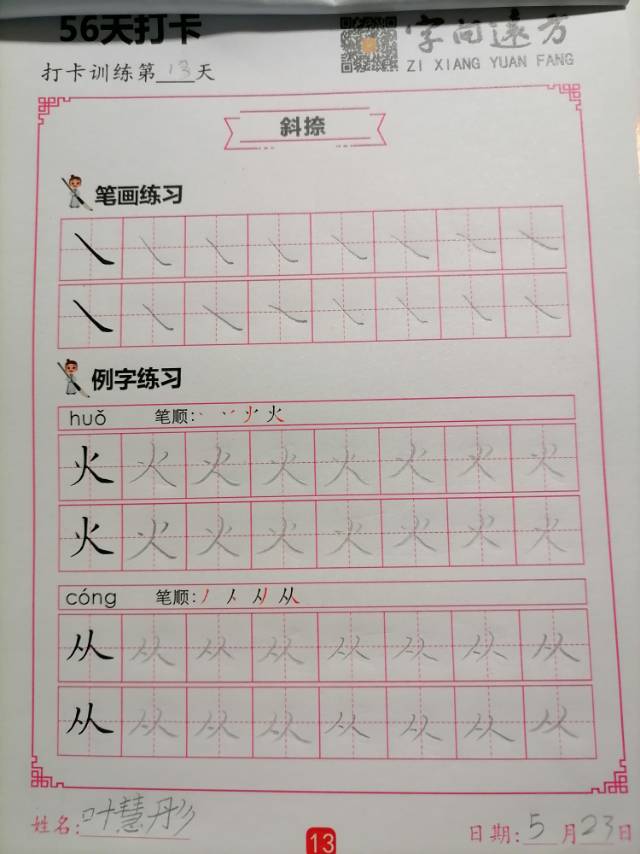 56天打卡
字向远方
ZI XIANG YUAN FANG
打卡训练第13天
斜捺
笔画练习
例字练习
huǒ 笔顺: 丶 丷 火
火 火 火 火 火 火 火 火
火 火 火 火 火 火 火 火
cóng 笔顺: 丿 人 从
从 从 从 从 从 从 从 从
从 从 从 从 从 从 从 从
姓名: 叶慧彤
13
日期: 5月23日